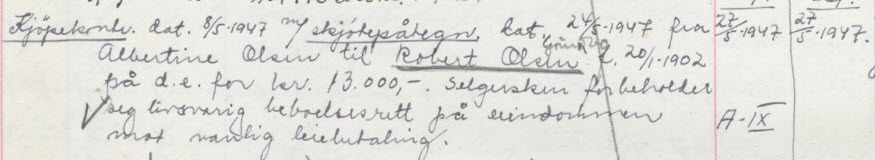 Kjöpekontr. dat. 8/5-1947 m/ skjötepåtegn. dat. 24/5-1947 fra 27/5-1947 27/5-1947.
Albertine Olsen til Robert Olsen f. 20/1-1902
på d.e. for kr. 13.000,-. Selgersken forbeholder
seg livsvarig beboelsesrett på eiendommen A-IX
mot vanlig leiebetaling.